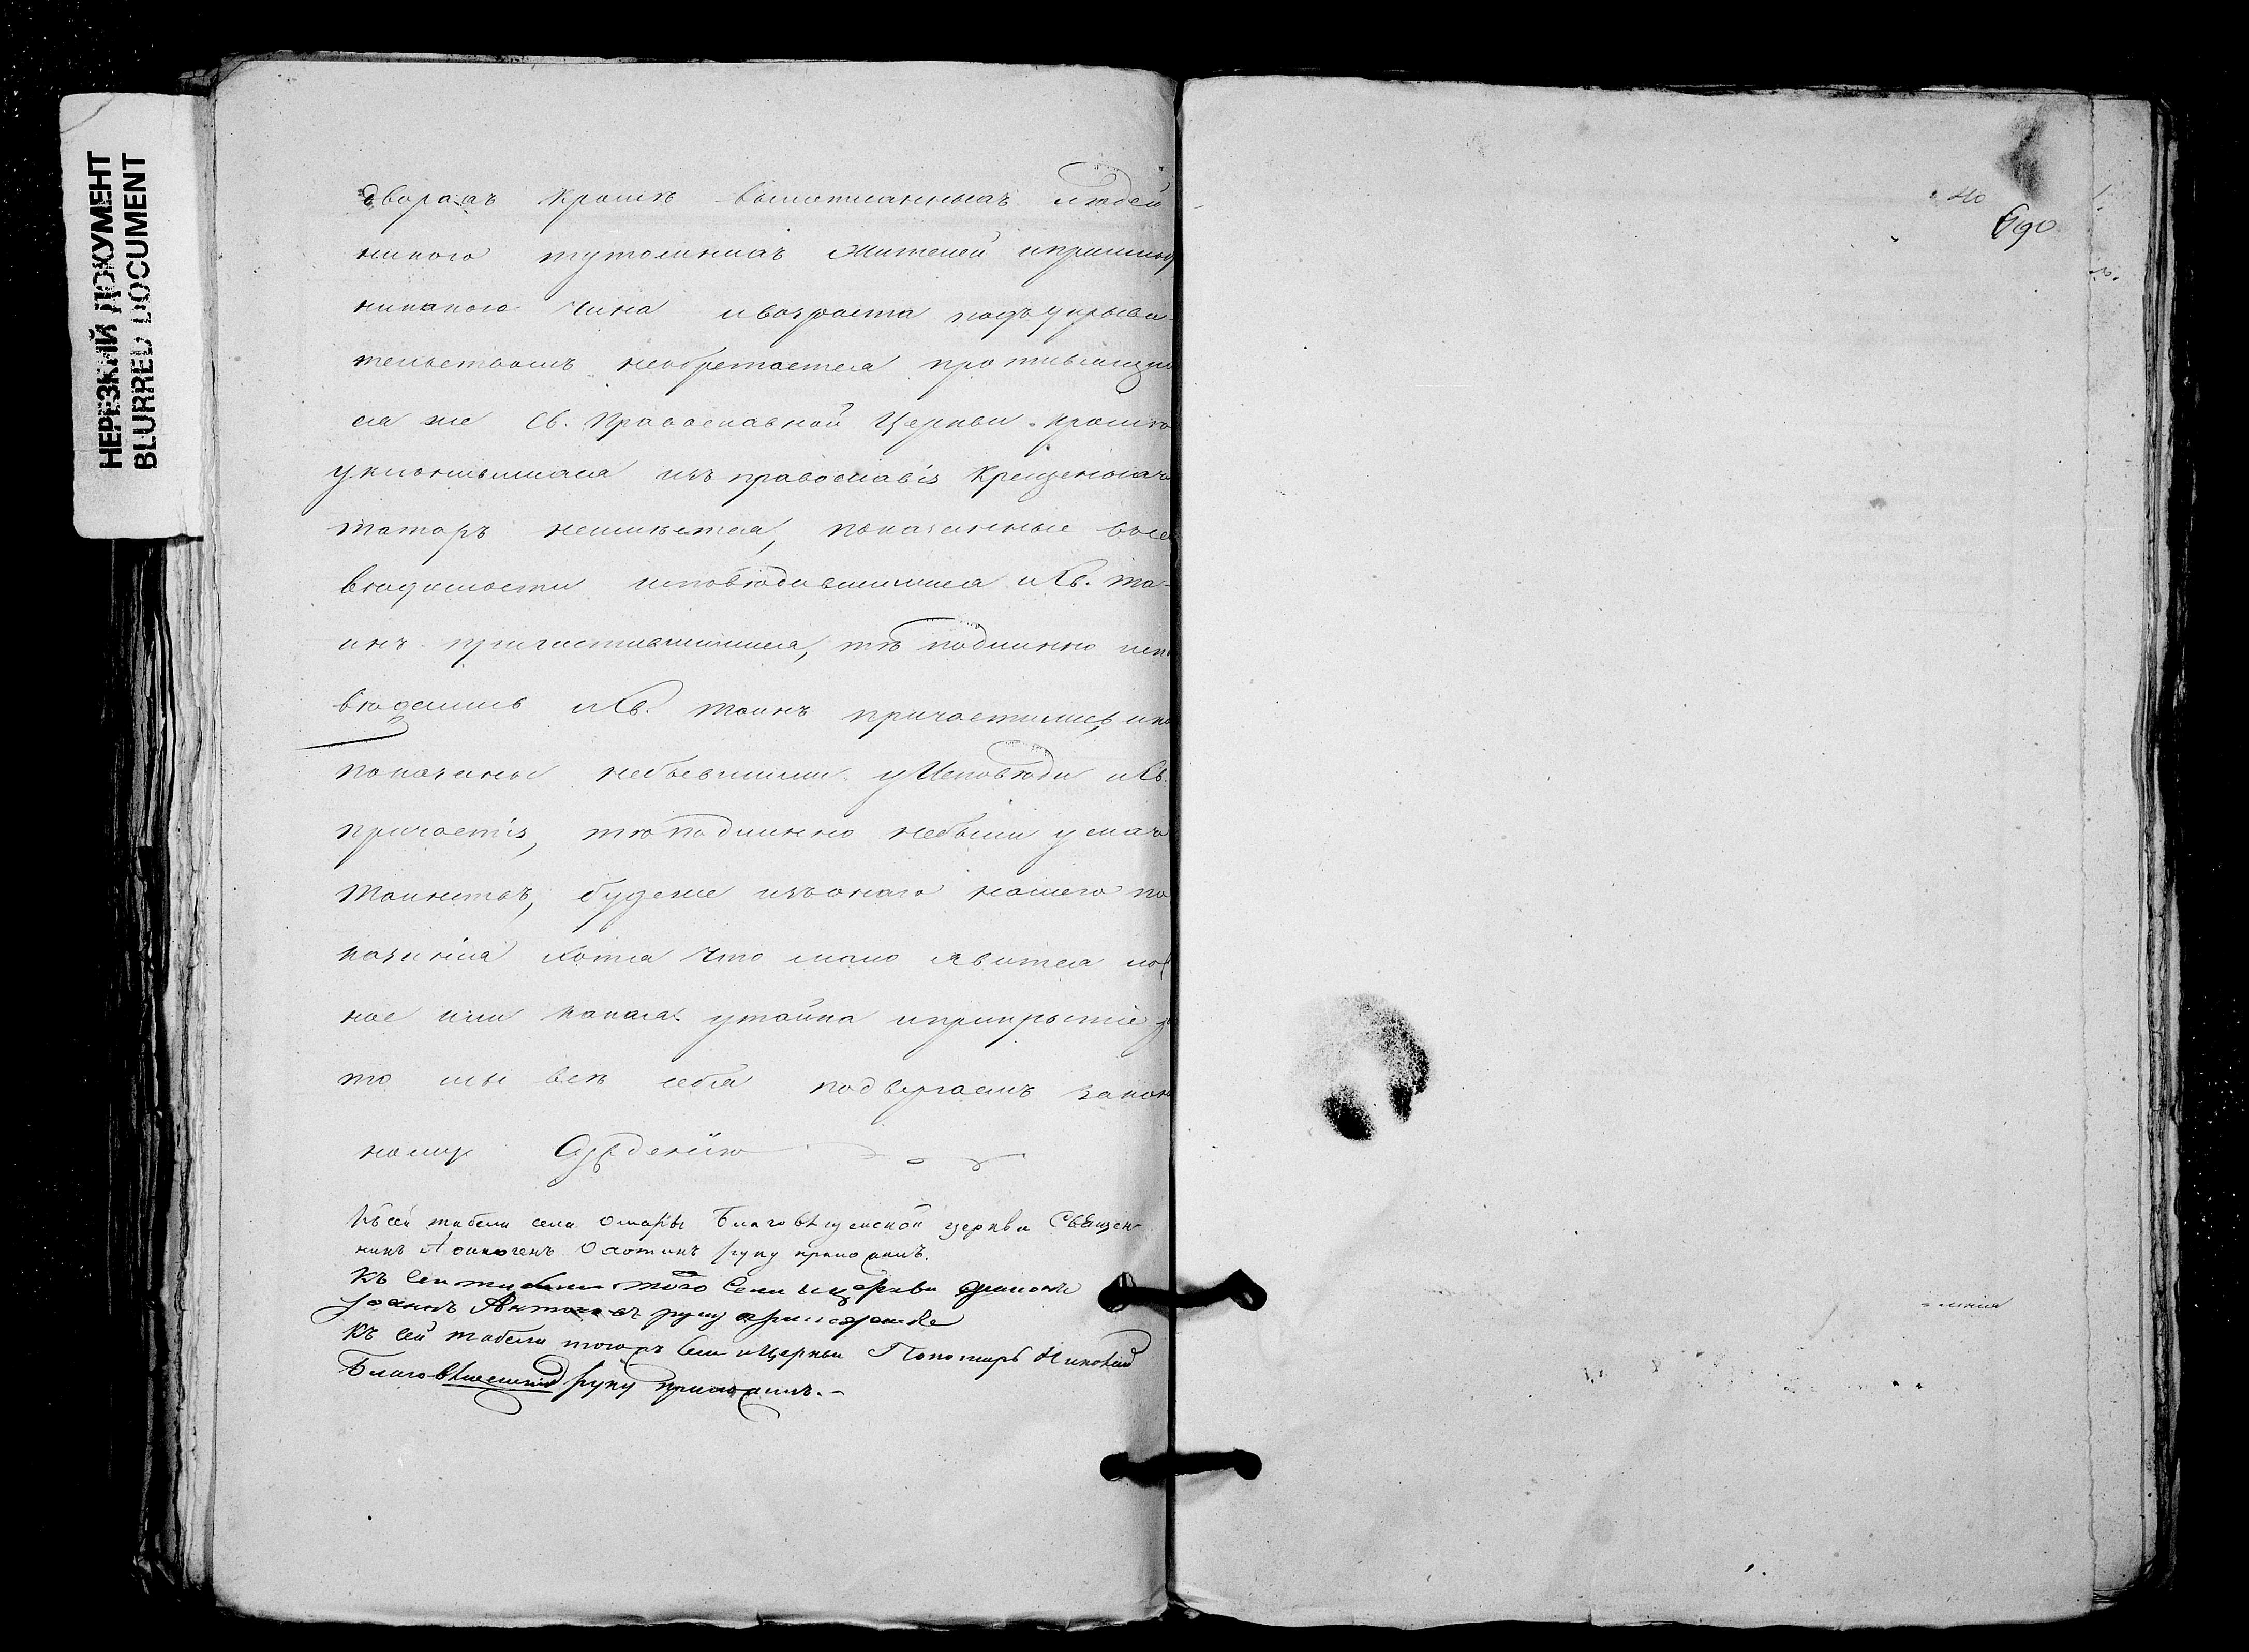 НЕРЕЗКИЙ ДОКУМЕНТ
BLURRED DOCUMENT
дворахъ кромѣ вышеписанныхъ людей
никого тутошнихъ жителей и пришлыхъ
никакого чина и возраста подъ укрыва-
тельствомъ необретается противящих
ся же Св. Православной Церкви кромѣ
уклонившихся изъ православія крещеныхъ
татаръ неимѣется, показанные въ сей
вѣдомости исповѣдавшимися и Св. Та-
инъ причастившимися, тѣ подлинно испо
вѣдались и Св. Таинъ причастились, и кои
показаны небывшими у Исповѣди и Св.
причастія, тѣ подлинно небыли у сихъ
Таинствъ, буде же изъ онаго нашего по
казанія хотя что мало явится лож
ное или какая утайка и прикрытіе за
то мы всѣ себя подвергаемъ закон
ному Сужденію
Къ сей табели села Омары Благовѣщенской церкви Священ-
никъ Аѳиногенъ Охотинъ руку приложилъ.
Къ сей табели того села и церкви дьяконъ
Іоаннъ руку приложилъ
Къ сей табели того жъ села и Церкви Пономарь Николай
Благовѣщенскій руку приложилъ.
690